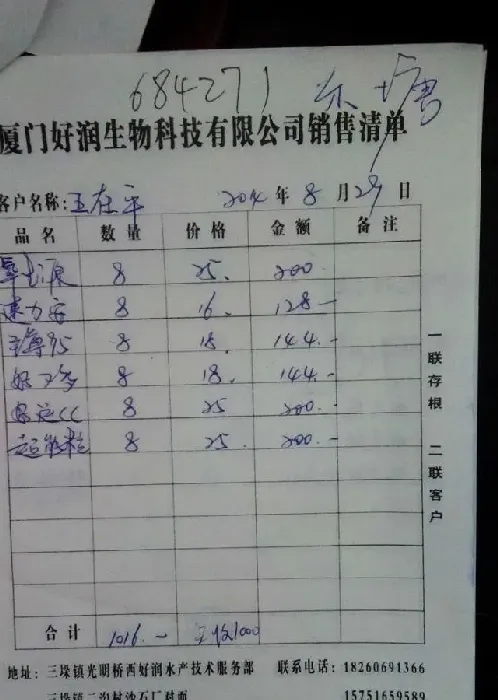 684271 东塘
厦门好润生物科技有限公司销售清单
客户名称: 王在平 2014 年 8 月 29 日
品名 数量 价格 金额 备注
8 25. 200.
8 16. 128-
8 18. 144.-
8 18. 144.-
8 25 200.-
超能粒 8 25. 200.-
合计 1016.- 实收1000
一联存根 二联客户
地址: 三垛镇光明桥西好润水产技术服务部 联系电话: 18260691366
三垛镇二沟村沙石厂对面 15751659589